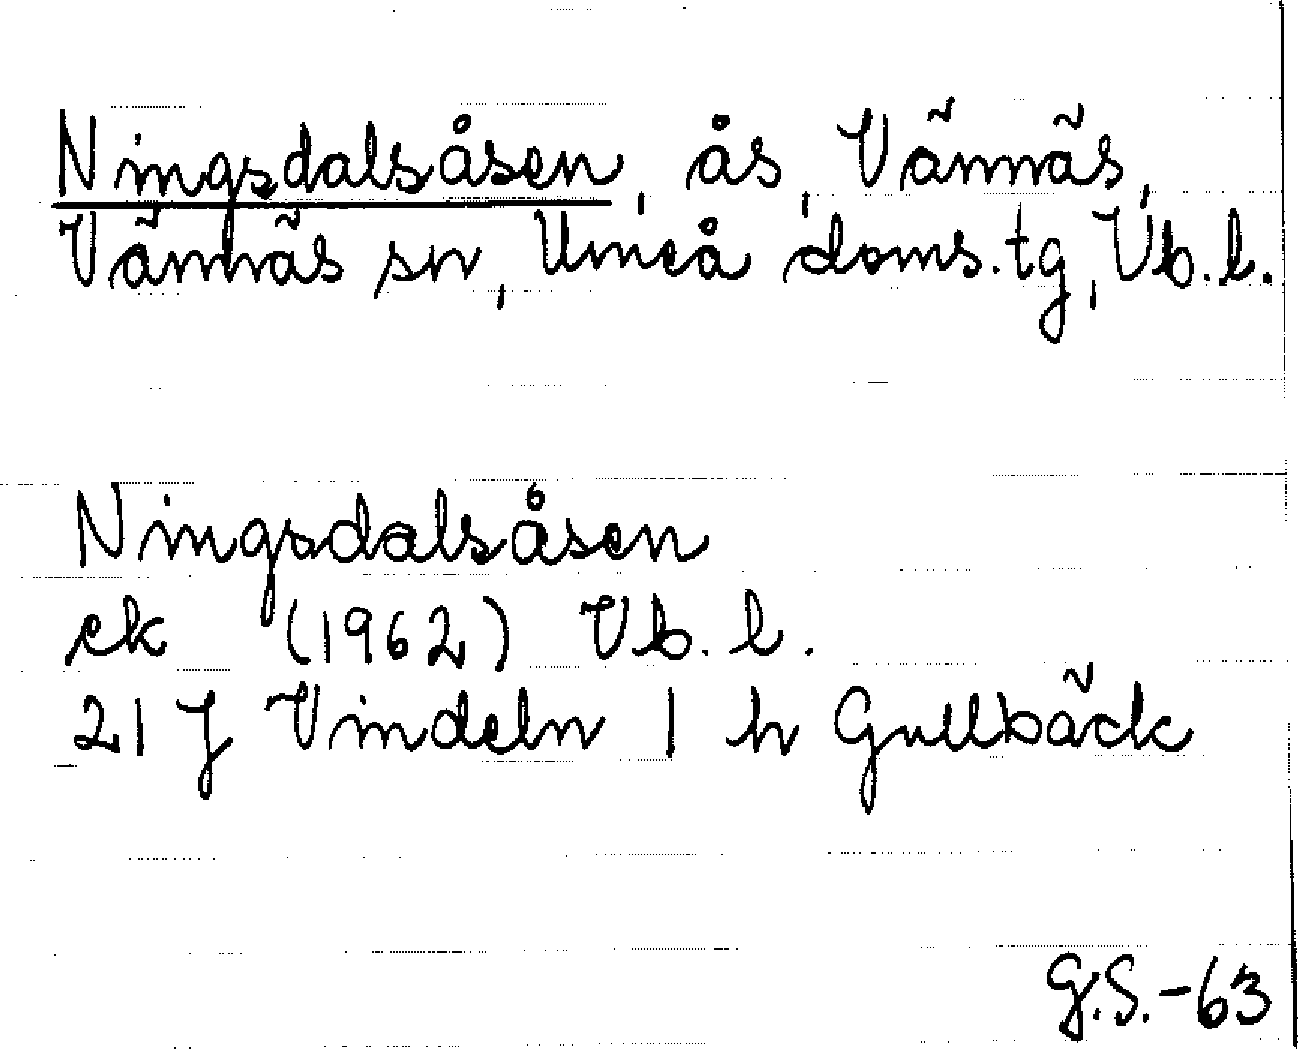 Ningsdalsåsen, ås, Vännäs,
Vännäs sn, Umeå doms.tg, Vb.l.
Ningsdalsåsen
ek (1962) Vb.l.
21 J Vindeln 1 h Gullbäck
G.S.-63